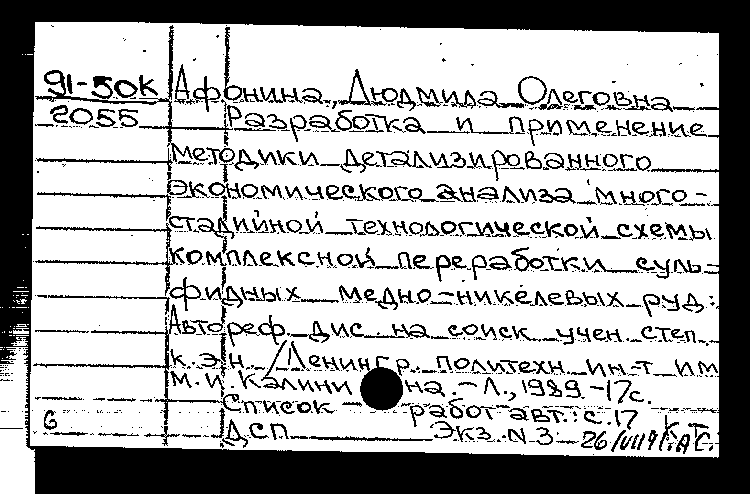 91-50К Афонина, Людмила Олеговна
2055 Разработка и применение
методики детализированного
экономического анализа много-
стадийной технологической схемы
комплексной переработки суль-
фидных медно-никелевых руд:
Автореф. дис. на соиск. учен. степ.
к.э.н. /Ленингр. политехн. ин-т им.
М.И. Калинина. - Л., 1989. - 17с.
Список работ авт.: с.17
6 ДСП Экз. N 3 26/VII91